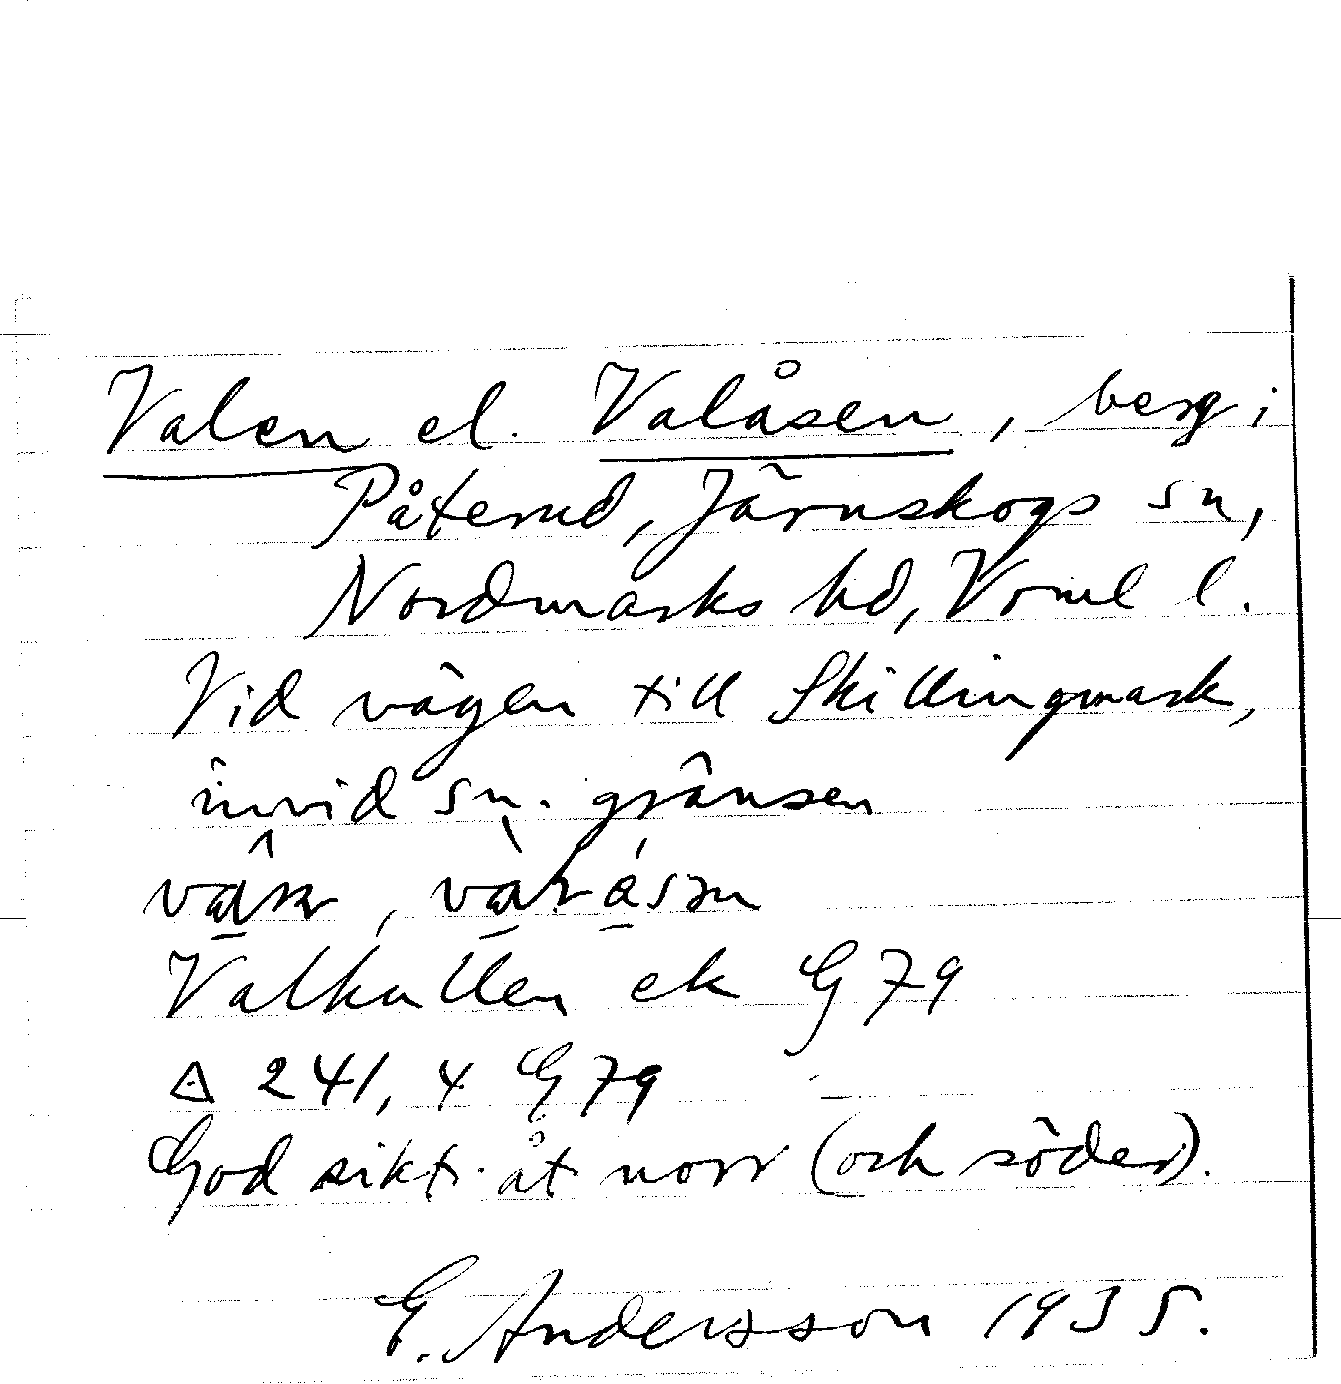 Valen el. Valåsen, berg i
Påterud, Järnskogs sn,
Nordmarks hd, Vrml l.
Vid vägen till Skillingmark,
invid sn. gränsen
Valkullen ek G79
△ 241,4 G79
God sikt åt norr (och söder).
E. Andersson 1935.